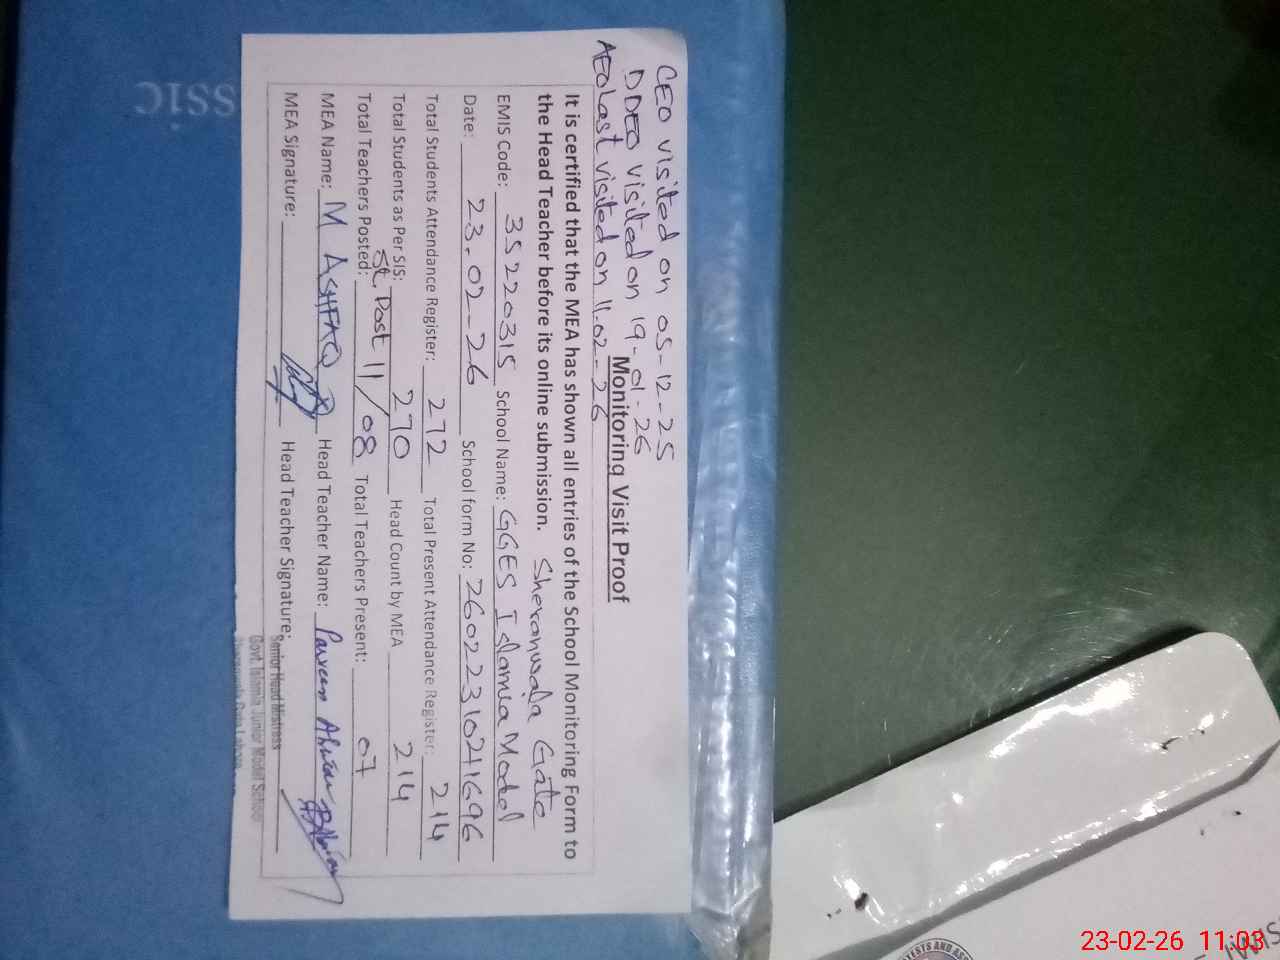 CEO visited on 05-12-25
DDEO visited on 19-01-26
AEO Last visited on 11-02-26
Monitoring Visit Proof
It is certified that the MEA has shown all entries of the School Monitoring Form to
the Head Teacher before its online submission.
Sheranwala Gate
EMIS Code: 35220315 School Name: GGES Islamia Model
Date: 23.02-26 School form No: 2602231021696
Total Students Attendance Register: 272 Total Present Attendance Register: 214
Total Students as Per SIS: 270 Head Count by MEA 214
St. Post 11/08
Total Teachers Posted: Total Teachers Present: 07
MEA Name: M ASHFAQ Head Teacher Name: Parveen Akhtar
MEA Signature: Head Teacher Signature:
Senior Head Mistress
Govt. Islamia Junior Model School
ssic
TESTS AND ASS
23-02-26 11:03